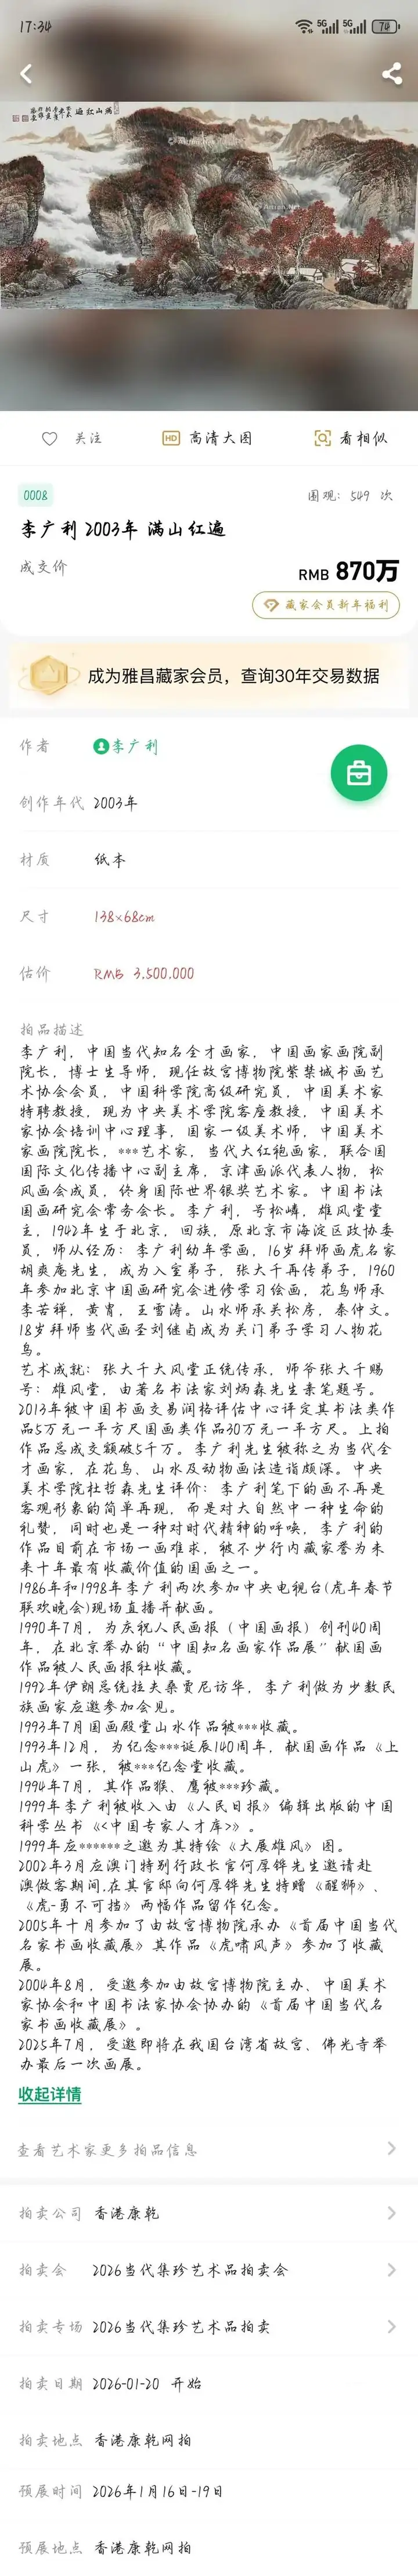 17:34
5G
5G
74
满山红遍
关注
HD 高清大图
看相似
0008
围观：549 次
李广利 2003年 满山红遍
成交价
RMB 870万
藏家会员新年福利
成为雅昌藏家会员，查询30年交易数据
作者 李广利
创作年代 2003年
材质 纸本
尺寸 138×68cm
估价 RMB 3,500,000
拍品描述
李广利，中国当代知名全才画家，中国画家画院副
院长，博士生导师，现任故宫博物院紫禁城书画艺
术协会会员，中国科学院高级研究员，中国美术家
特聘教授，现为中央美术学院客座教授，中国美术
家协会培训中心理事，国家一级美术师，中国美术
家画院院长，***艺术家，当代大红袍画家，联合国
国际文化传播中心副主席，京津画派代表人物，松
风画会成员，终身国际世界银奖艺术家。中国书法
国画研究会常务会长。李广利，号松嶂，雄风堂堂
主，1942年生于北京，回族，原北京市海淀区政协委
员，师从经历：李广利幼年学画，16岁拜师画虎名家
胡爽庵先生，成为入室弟子，张大千再传弟子，1960
年参加北京中国画研究会进修学习绘画，花鸟师承
李苦禅，黄胄，王雪涛。山水师承关松房，秦仲文。
18岁拜师当代画圣刘继卣成为关门弟子学习人物花
鸟。
艺术成就：张大千大风堂正统传承，师爷张大千赐
号：雄风堂，由著名书法家刘炳森先生亲笔题号。
2013年被中国书画交易润格评估中心评定其书法类作
品5万元一平方尺国画类作品30万元一平方尺。上拍
作品总成交额破5千万。李广利先生被称之为当代全
才画家，在花鸟、山水及动物画法造诣颇深。中央
美术学院杜哲森先生评价：李广利笔下的画不再是
客观形象的简单再现，而是对大自然中一种生命的
礼赞，同时也是一种对时代精神的呼唤，李广利的
作品目前在市场一画难求，被不少行内藏家誉为未
来十年最有收藏价值的国画之一。
1986年和1998年李广利两次参加中央电视台(虎年春节
联欢晚会)现场直播并献画。
1990年7月，为庆祝人民画报（中国画报）创刊40周
年，在北京举办的“中国知名画家作品展”献国画
作品被人民画报社收藏。
1992年伊朗总统拉夫桑贾尼访华，李广利做为少数民
族画家应邀参加会见。
1993年7月国画殿堂山水作品被***收藏。
1993年12月，为纪念***诞辰140周年，献国画作品《上
山虎》一张，被***纪念堂收藏。
1994年7月，其作品猴、鹰被***珍藏。
1999年李广利被收入由《人民日报》编辑出版的中国
科学丛书《<中国专家人才库>》。
1999年应******之邀为其特绘《大展雄风》图。
2002年3月应澳门特别行政长官何厚铧先生邀请赴
澳做客期间,在其官邸向何厚铧先生特赠《醒狮》、
《虎-勇不可挡》两幅作品留作纪念。
2005年十月参加了由故宫博物院承办《首届中国当代
名家书画收藏展》其作品《虎啸风声》参加了收藏
展。
2004年8月，受邀参加由故宫博物院主办、中国美术
家协会和中国书法家协会协办的《首届中国当代名
家书画收藏展》。
2025年7月，受邀即将在我国台湾省故宫、佛光寺举
办最后一次画展。
收起详情
查看艺术家更多拍品信息
拍卖公司 香港康乾
拍卖会 2026当代集珍艺术品拍卖会
拍卖专场 2026当代集珍艺术品拍卖
拍卖日期 2026-01-20 开始
拍卖地点 香港康乾网拍
预展时间 2026年1月16日-19日
预展地点 香港康乾网拍